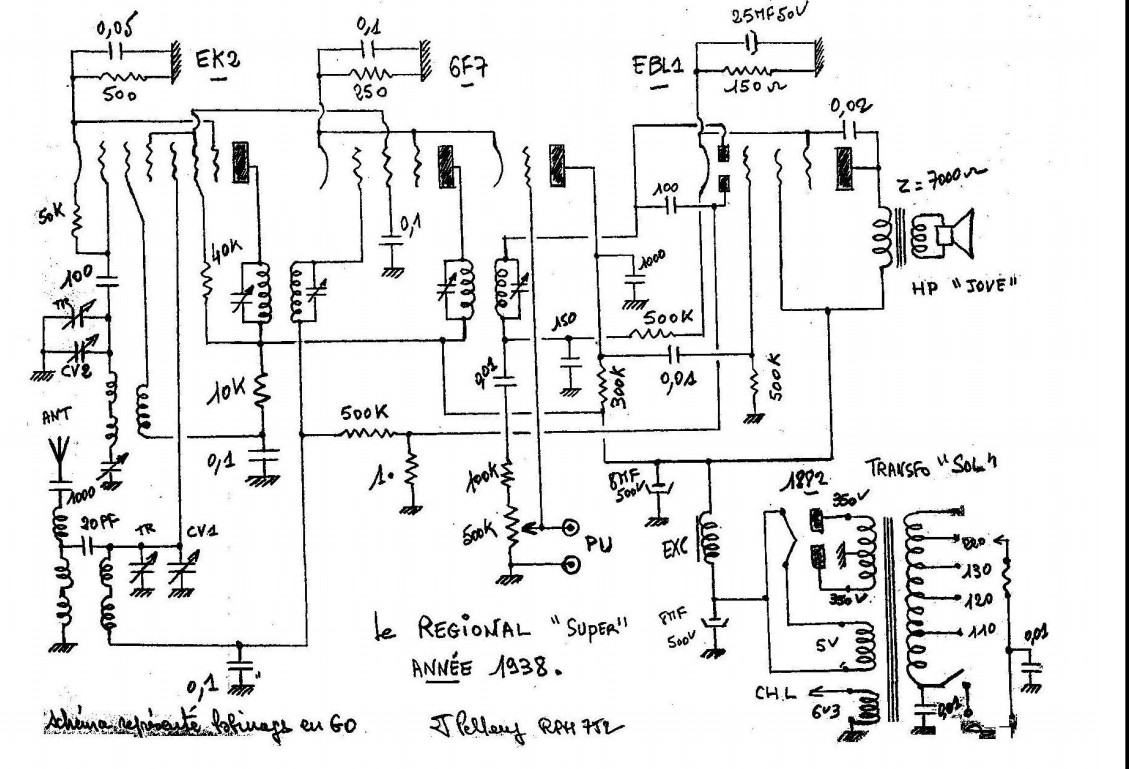 0,05
EK2
500
0,1
6F7
250
25MF50V
EBL1
150Ω
0,02
Z=7000Ω
HP "JOVE"
50K
100
TR
CV2
40K
0,1
100
1000
500K
150
0,01
0,01
300K
500K
10K
0,1
500K
100K
500K
PU
ANT
1000
20PF
TR
CV1
0,1
8MF
500V
EXC
8MF
500V
1882
350V
350V
5V
CH.L
6V3
TRANSFO
130
120
110
0,01
0,01
Le REGIONAL "SUPER"
ANNÉE 1938.
Schéma représenté bobinage en GO
RPH 752